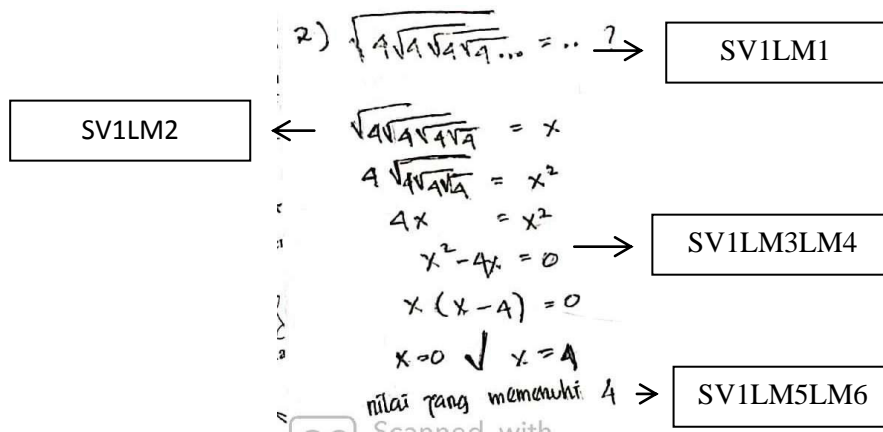 2) √4√4√4√4... = .. ?
SV1LM1
SV1LM2
√4√4√4√4 = x
4√4√4√4 = x²
4x = x²
SV1LM3LM4
x² - 4x = 0
x (x - 4) = 0
x = 0 √ x = 4
nilai yang memenuhi 4
SV1LM5LM6
Scanned with